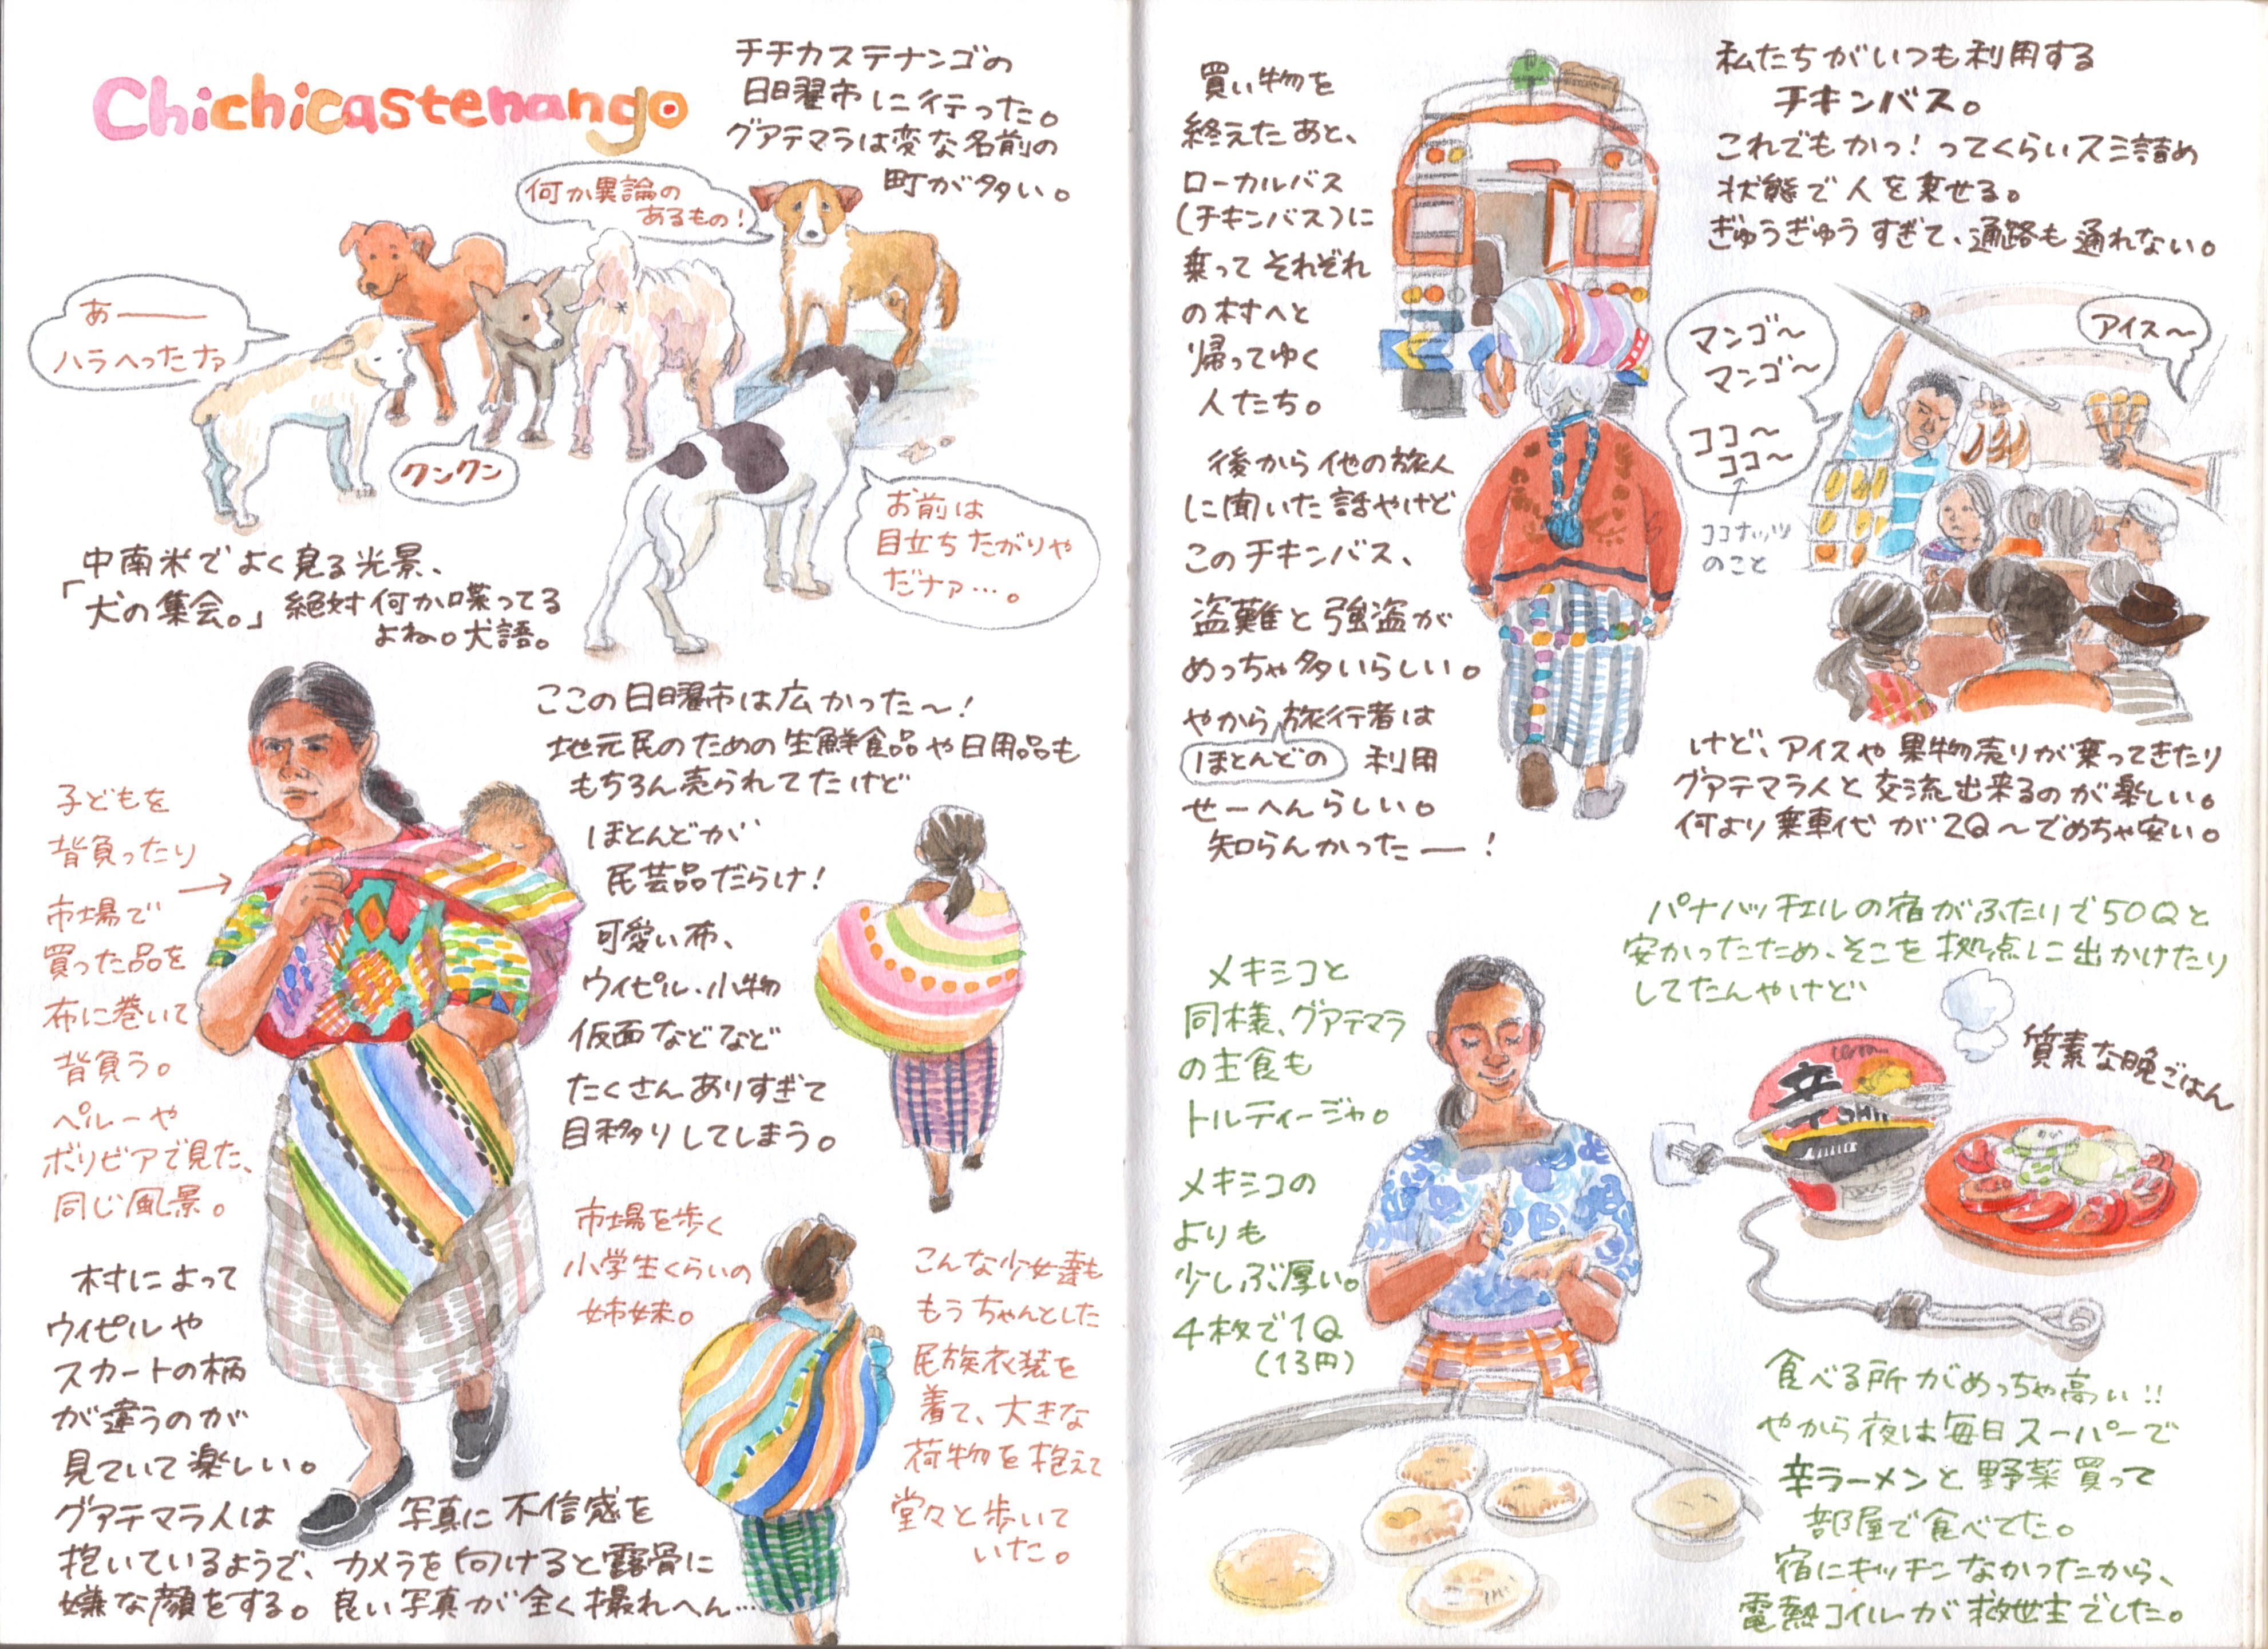 Chichicastenango
チチカステナンゴの
日曜市に行った。
グアテマラは変な名前の
町が多い。
何か異論の
あるもの！
あ――
ハラへったナァ
クンクン
お前は
目立ちたがりや
だナァ…。
中南米でよく見る光景、
「犬の集会。」絶対何か喋ってる
よね。犬語。
ここの日曜市は広かった〜！
地元民のための生鮮食品や日用品も
もちろん売られてたけど
ほとんどが
民芸品だらけ！
可愛い布、
ウイピル、小物
仮面などなど
たくさんありすぎて
目移りしてしまう。
子どもを
背負ったり
市場で
買った品を
布に巻いて
背負う。
ペルーや
ボリビアで見た、
同じ風景。
村によって
ウイピルや
スカートの柄
が違うのが
見ていて楽しい。
グアテマラ人は 写真に不信感を
抱いているようで、カメラを向けると露骨に
嫌な顔をする。良い写真が全く撮れへん…
市場を歩く
小学生くらいの
姉妹。
こんな少女達も
もうちゃんとした
民族衣装を
着て、大きな
荷物を抱えて
堂々と歩いて
いた。
買い物を
終えたあと、
ローカルバス
（チキンバス）に
乗ってそれぞれ
の村へと
帰ってゆく
人たち。
後から他の旅人
に聞いた話やけど
このチキンバス、
盗難と強盗が
めっちゃ多いらしい。
やから旅行者は
ほとんどの 利用
せーへんらしい。
知らんかったー！
私たちがいつも利用する
チキンバス。
これでもかっ！ってくらいスミ詰め
状態で人を乗せる。
ぎゅうぎゅうすぎて、通路も通れない。
マンゴ〜
マンゴ〜
ココ〜
ココ〜
ココナッツ
のこと
アイス〜
けど、アイスや果物売りが乗ってきたり
グアテマラ人と交流出来るのが楽しい。
何より乗車代が2Q〜でめちゃ安い。
メキシコと
同様、グアテマラ
の主食も
トルティージャ。
メキシコの
よりも
少しぶ厚い。
4枚で1Q
（13円）
パナハッチェルの宿がふたりで50Qと
安かったため、そこを拠点に出かけたり
してたんやけど
質素な晩ごはん
辛
食べる所がめっちゃ高い!!
やから夜は毎日スーパーで
辛ラーメンと野菜買って
部屋で食べてた。
宿にキッチンなかったから、
電熱コイルが救世主でした。